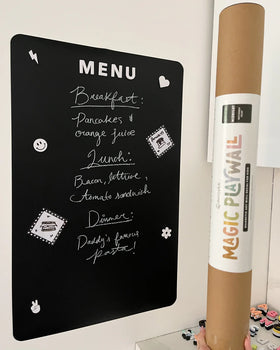 MENU
Breakfast:
Pancakes &
orange juice
Lunch:
Bacon, lettuce,
tomato sandwich
Dinner:
Daddy's famous
pasta!
MAGIC PLAYWALL